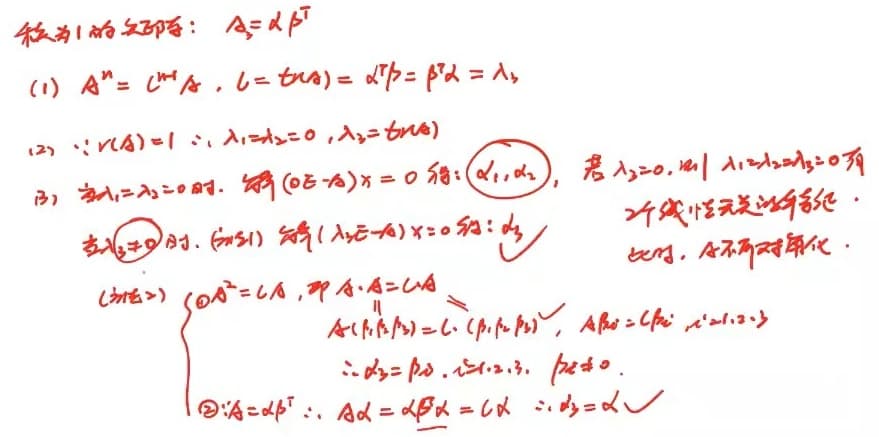 秩为1的矩阵: A₃=αβᵀ
(1) Aⁿ = Lⁿ⁻¹A, L = tr(A) = αᵀβ = βᵀα = λ₃
(2) ∵ r(A)=1 ∴ λ₁=λ₂=0, λ₃=tr(A)
(3) 当λ₁=λ₂=0时. 解(0E-A)x=0得: α₁, α₂, 若λ₃=0, 则λ₁=λ₂=λ₃=0有
2个线性无关的特征
此时, A不可对角化.
当λ₃≠0时. (方法1) 解(λ₃E-A)x=0得: α₃
(方法2) ①A²=LA, 即A·A=L·A
A(β₁ β₂ β₃)=L·(β₁ β₂ β₃), Aβᵢ=Lβᵢ, i=1.2.3
∴ α₃=βᵢ, i=1.2.3, βᵢ≠0.
②∵A=αβᵀ ∴ Aα=αβᵀα=Lα ∴ α₃=α